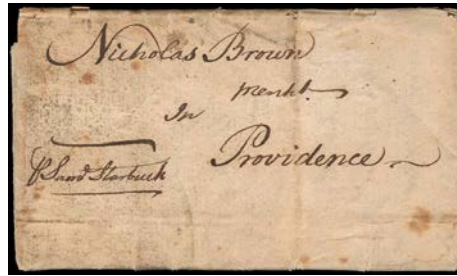 Nicholas Brown
Mercht.
In
Providence
Starbuck